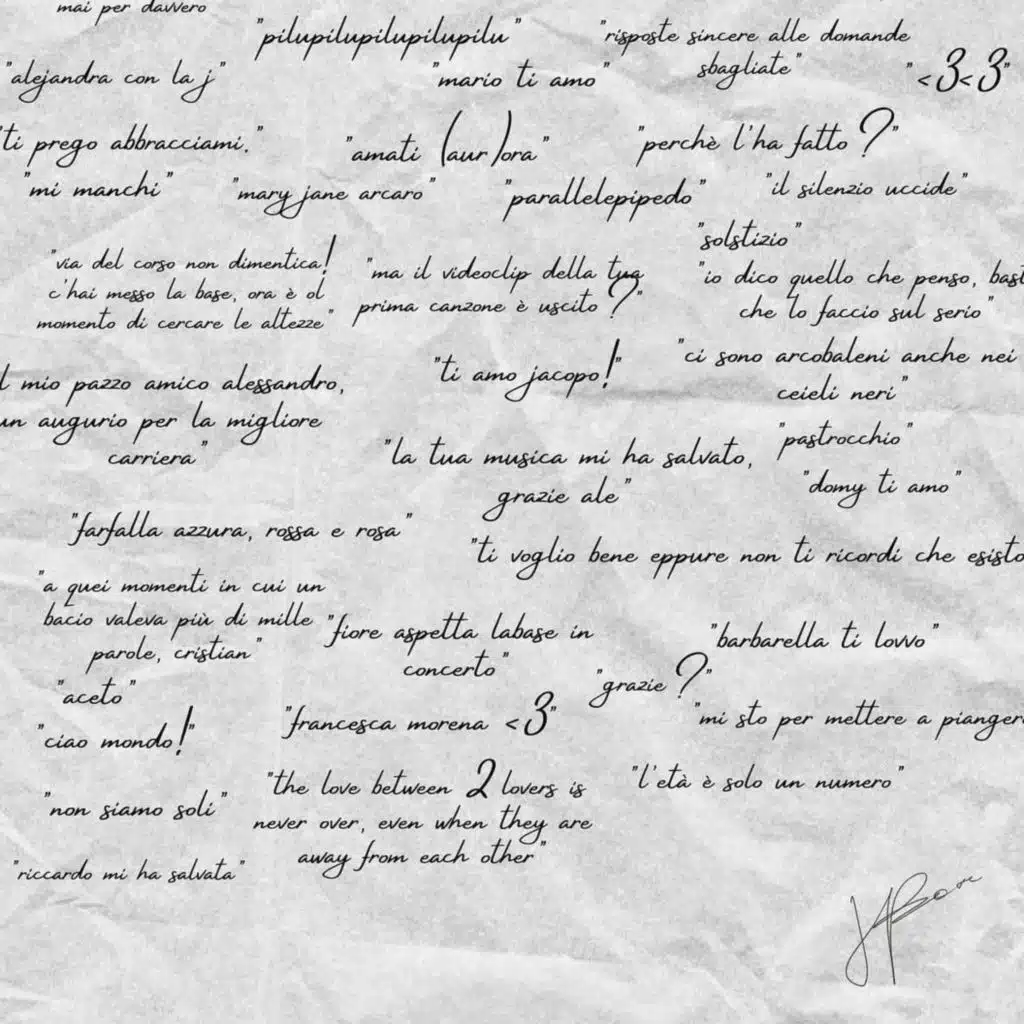 mai per davvero
"pilupilupilupilupilu"
"risposte sincere alle domande
sbagliate"
"alejandra con la j"
"mario ti amo"
"<3<3"
"ti prego abbracciami."
"amati (aur)ora"
"perchè l'ha fatto?"
"mi manchi"
"mary jane arcaro"
"parallelepipedo"
"il silenzio uccide"
"solstizio"
"via del corso non dimentica!
c'hai messo la base, ora è ol
momento di cercare le altezze"
"ma il videoclip della tua
prima canzone è uscito?"
"io dico quello che penso, bast
che lo faccio sul serio"
l mio pazzo amico alessandro,
un augurio per la migliore
carriera"
"ti amo jacopo!"
"ci sono arcobaleni anche nei
ceieli neri"
"la tua musica mi ha salvato,
grazie ale"
"pastrocchio"
"domy ti amo"
"farfalla azzura, rossa e rosa"
"ti voglio bene eppure non ti ricordi che esisto
"a quei momenti in cui un
bacio valeva più di mille
parole, cristian"
"fiore aspetta labase in
concerto"
"barbarella ti lovvo"
"aceto"
"grazie?"
"ciao mondo!"
"francesca morena <3"
"mi sto per mettere a pianger
"non siamo soli"
"the love between 2 lovers is
never over, even when they are
away from each other"
"l'età è solo un numero"
"riccardo mi ha salvata"